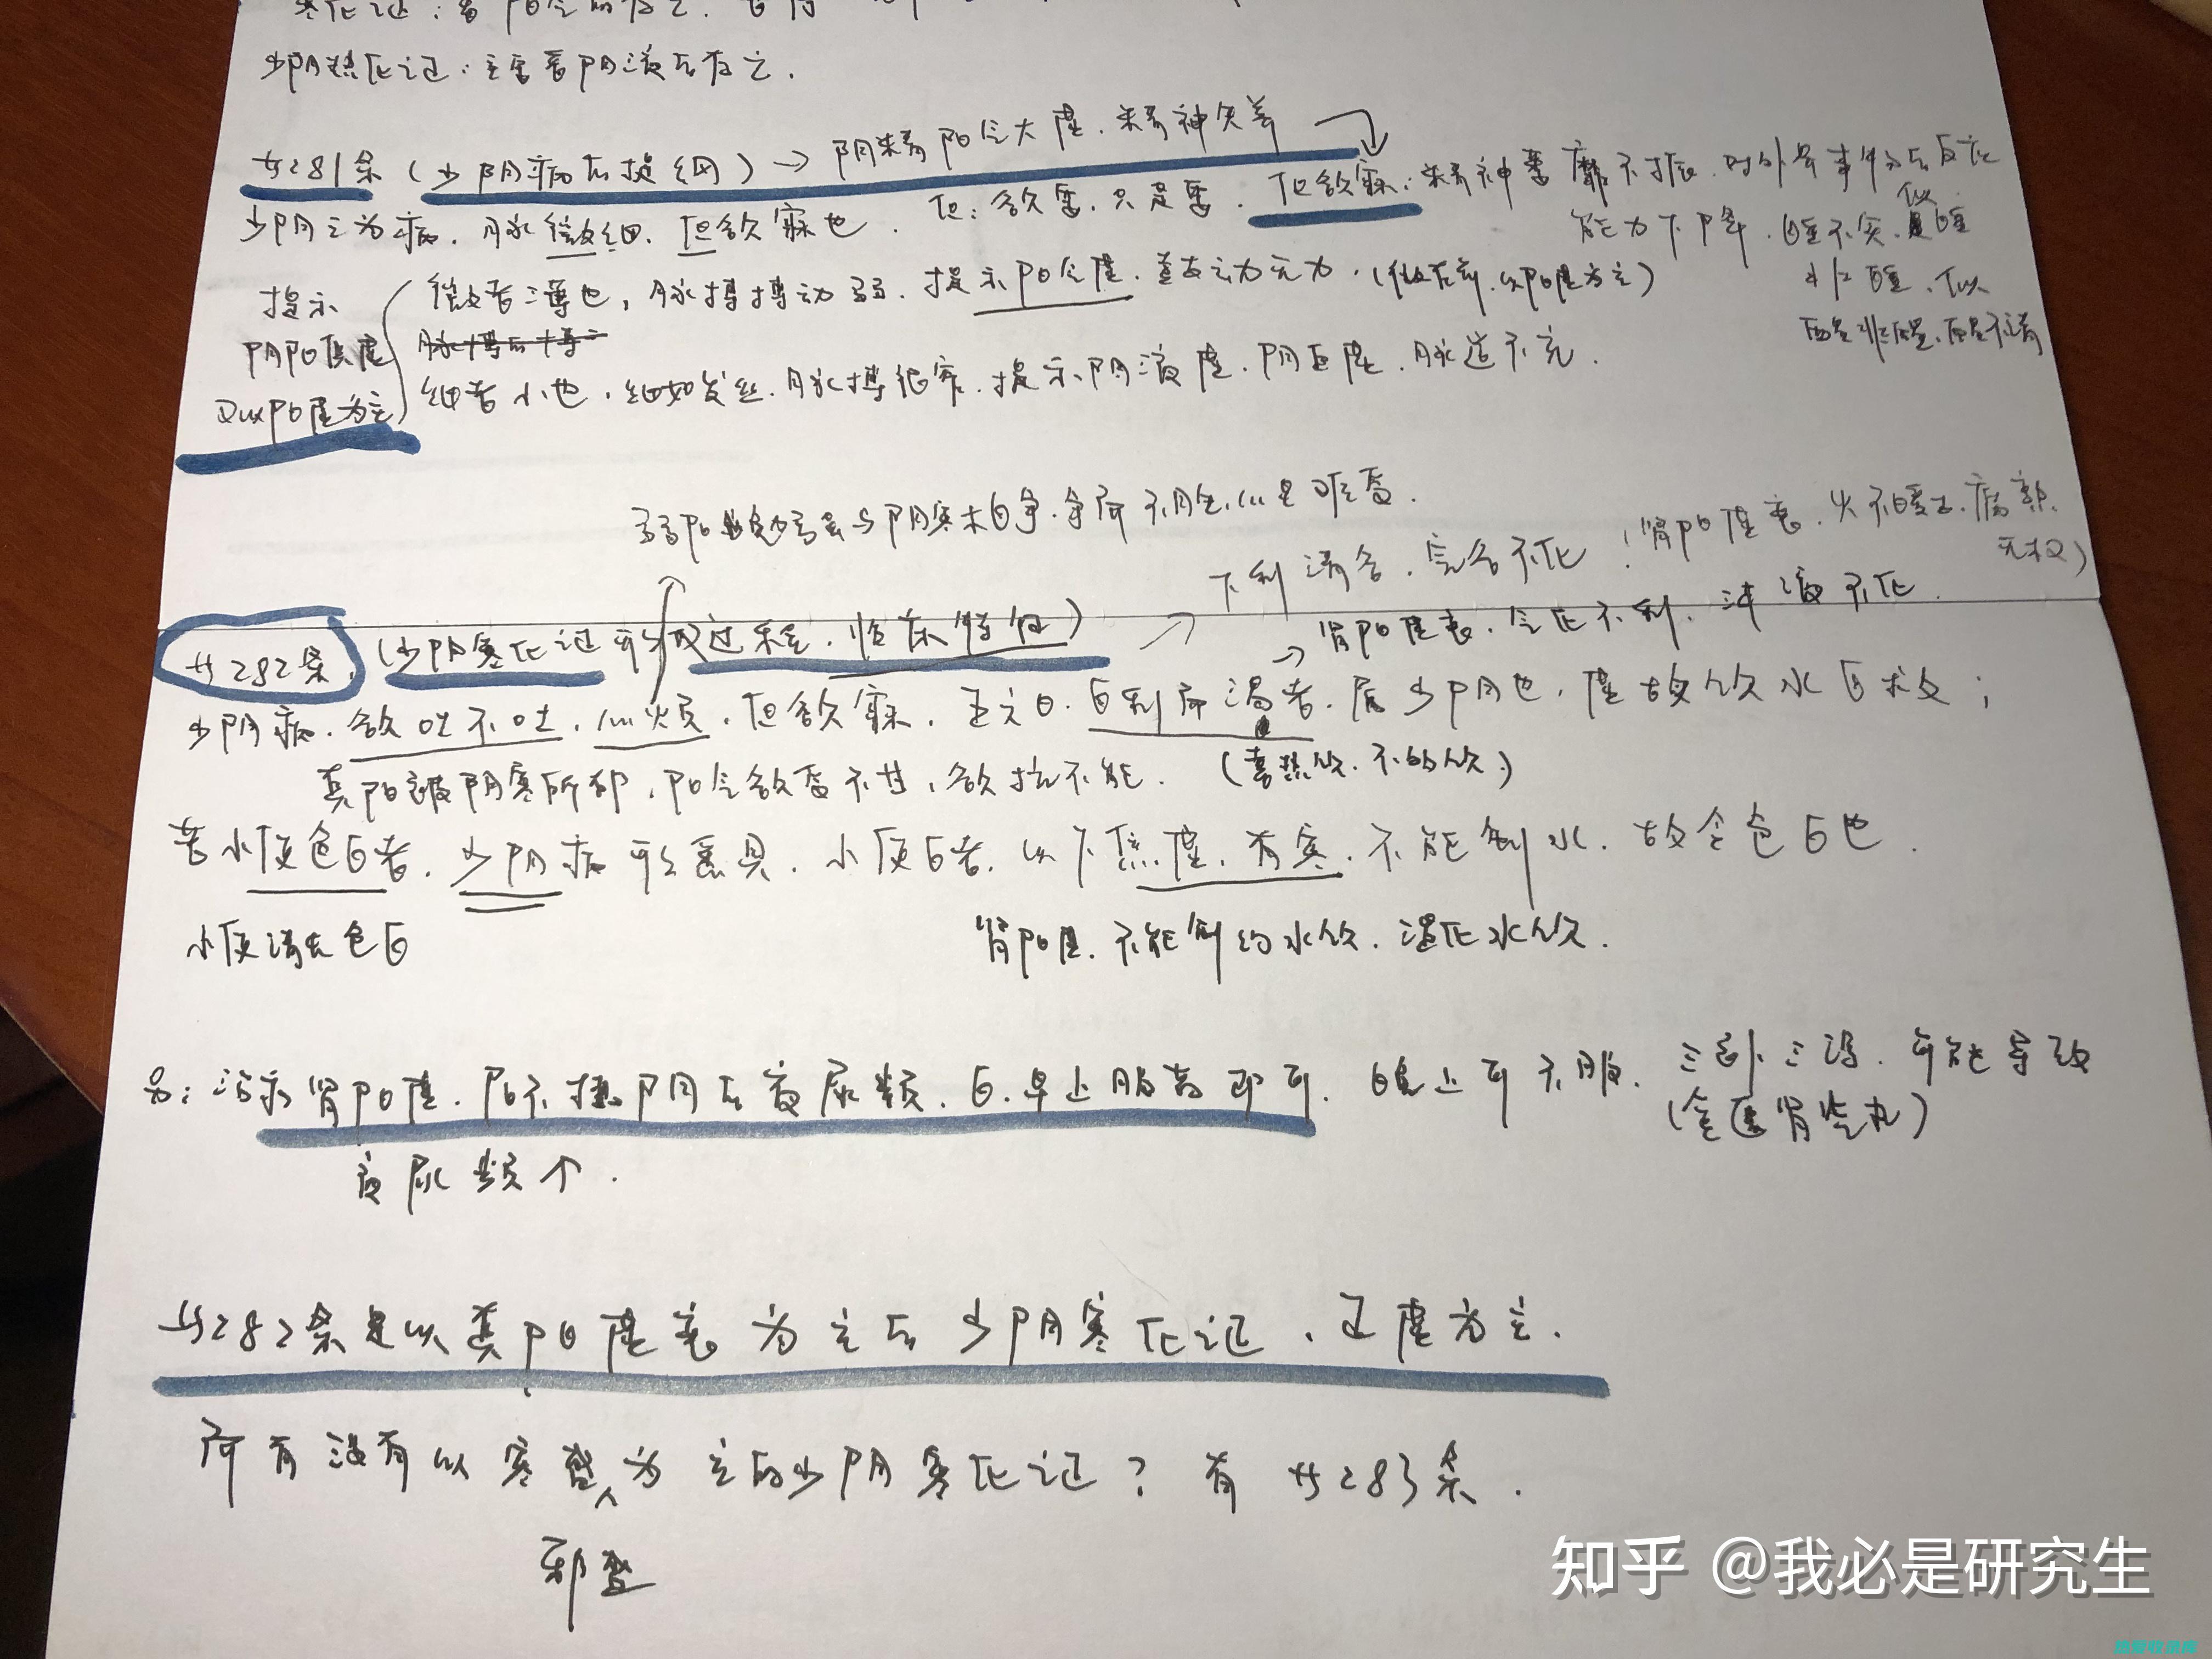 少阴热化证：主要看阴液的存亡.
#281条（少阴病的提纲）→ 阴精阳气大虚.精神失养
少阴之为病.脉微细.但欲寐也. 但：欲要.只是要. 但欲寐：精神萎靡不振.对外界事件的反应
能力下降.睡不实.似睡
非睡.似
醒非醒.醒不清
提示
阴阳俱虚
以阳虚为主
微者：薄也，脉搏搏动弱.提示阳气虚.鼓动无力.（微在前.以阳虚为主）
细者小也.细如发丝.脉搏很窄.提示阴液虚.阴血虚.脉道不充.
弱阳勉强与阴寒相争.争而不胜.心里难受.
下利清谷.完谷不化（肾阳虚衰.火不暖土.腐熟
无权）
#282条.（少阴寒化证形成过程.临床特征）
→ 肾阳虚衰.气化不利.津液不化.
少阴病.欲吐不吐.心烦.但欲寐.五六日.自利而渴者.属少阴也.虚故饮水自救；
真阳被阴寒所郁.阳气欲奋不甘，欲抗不能. （喜热饮.不多饮.）
若小便色白者.少阴病形悉具.小便白者.以下焦虚.有寒.不能制水.故令色白也.
小便清长色白
肾阳虚.不能制约水饮.温化水饮.
另：治疗肾阳虚.阳不摄阴的夜尿频.白.早上服药即可.晚上可不服.三补三泻.可能导致
（金匮肾气丸）
夜尿频↑.
#282条是以真阳虚衰为主的少阴寒化证.正虚为主.
而有没有以寒盛为主的少阴寒化证？有 #283条.
邪盛
知乎 @我必是研究生